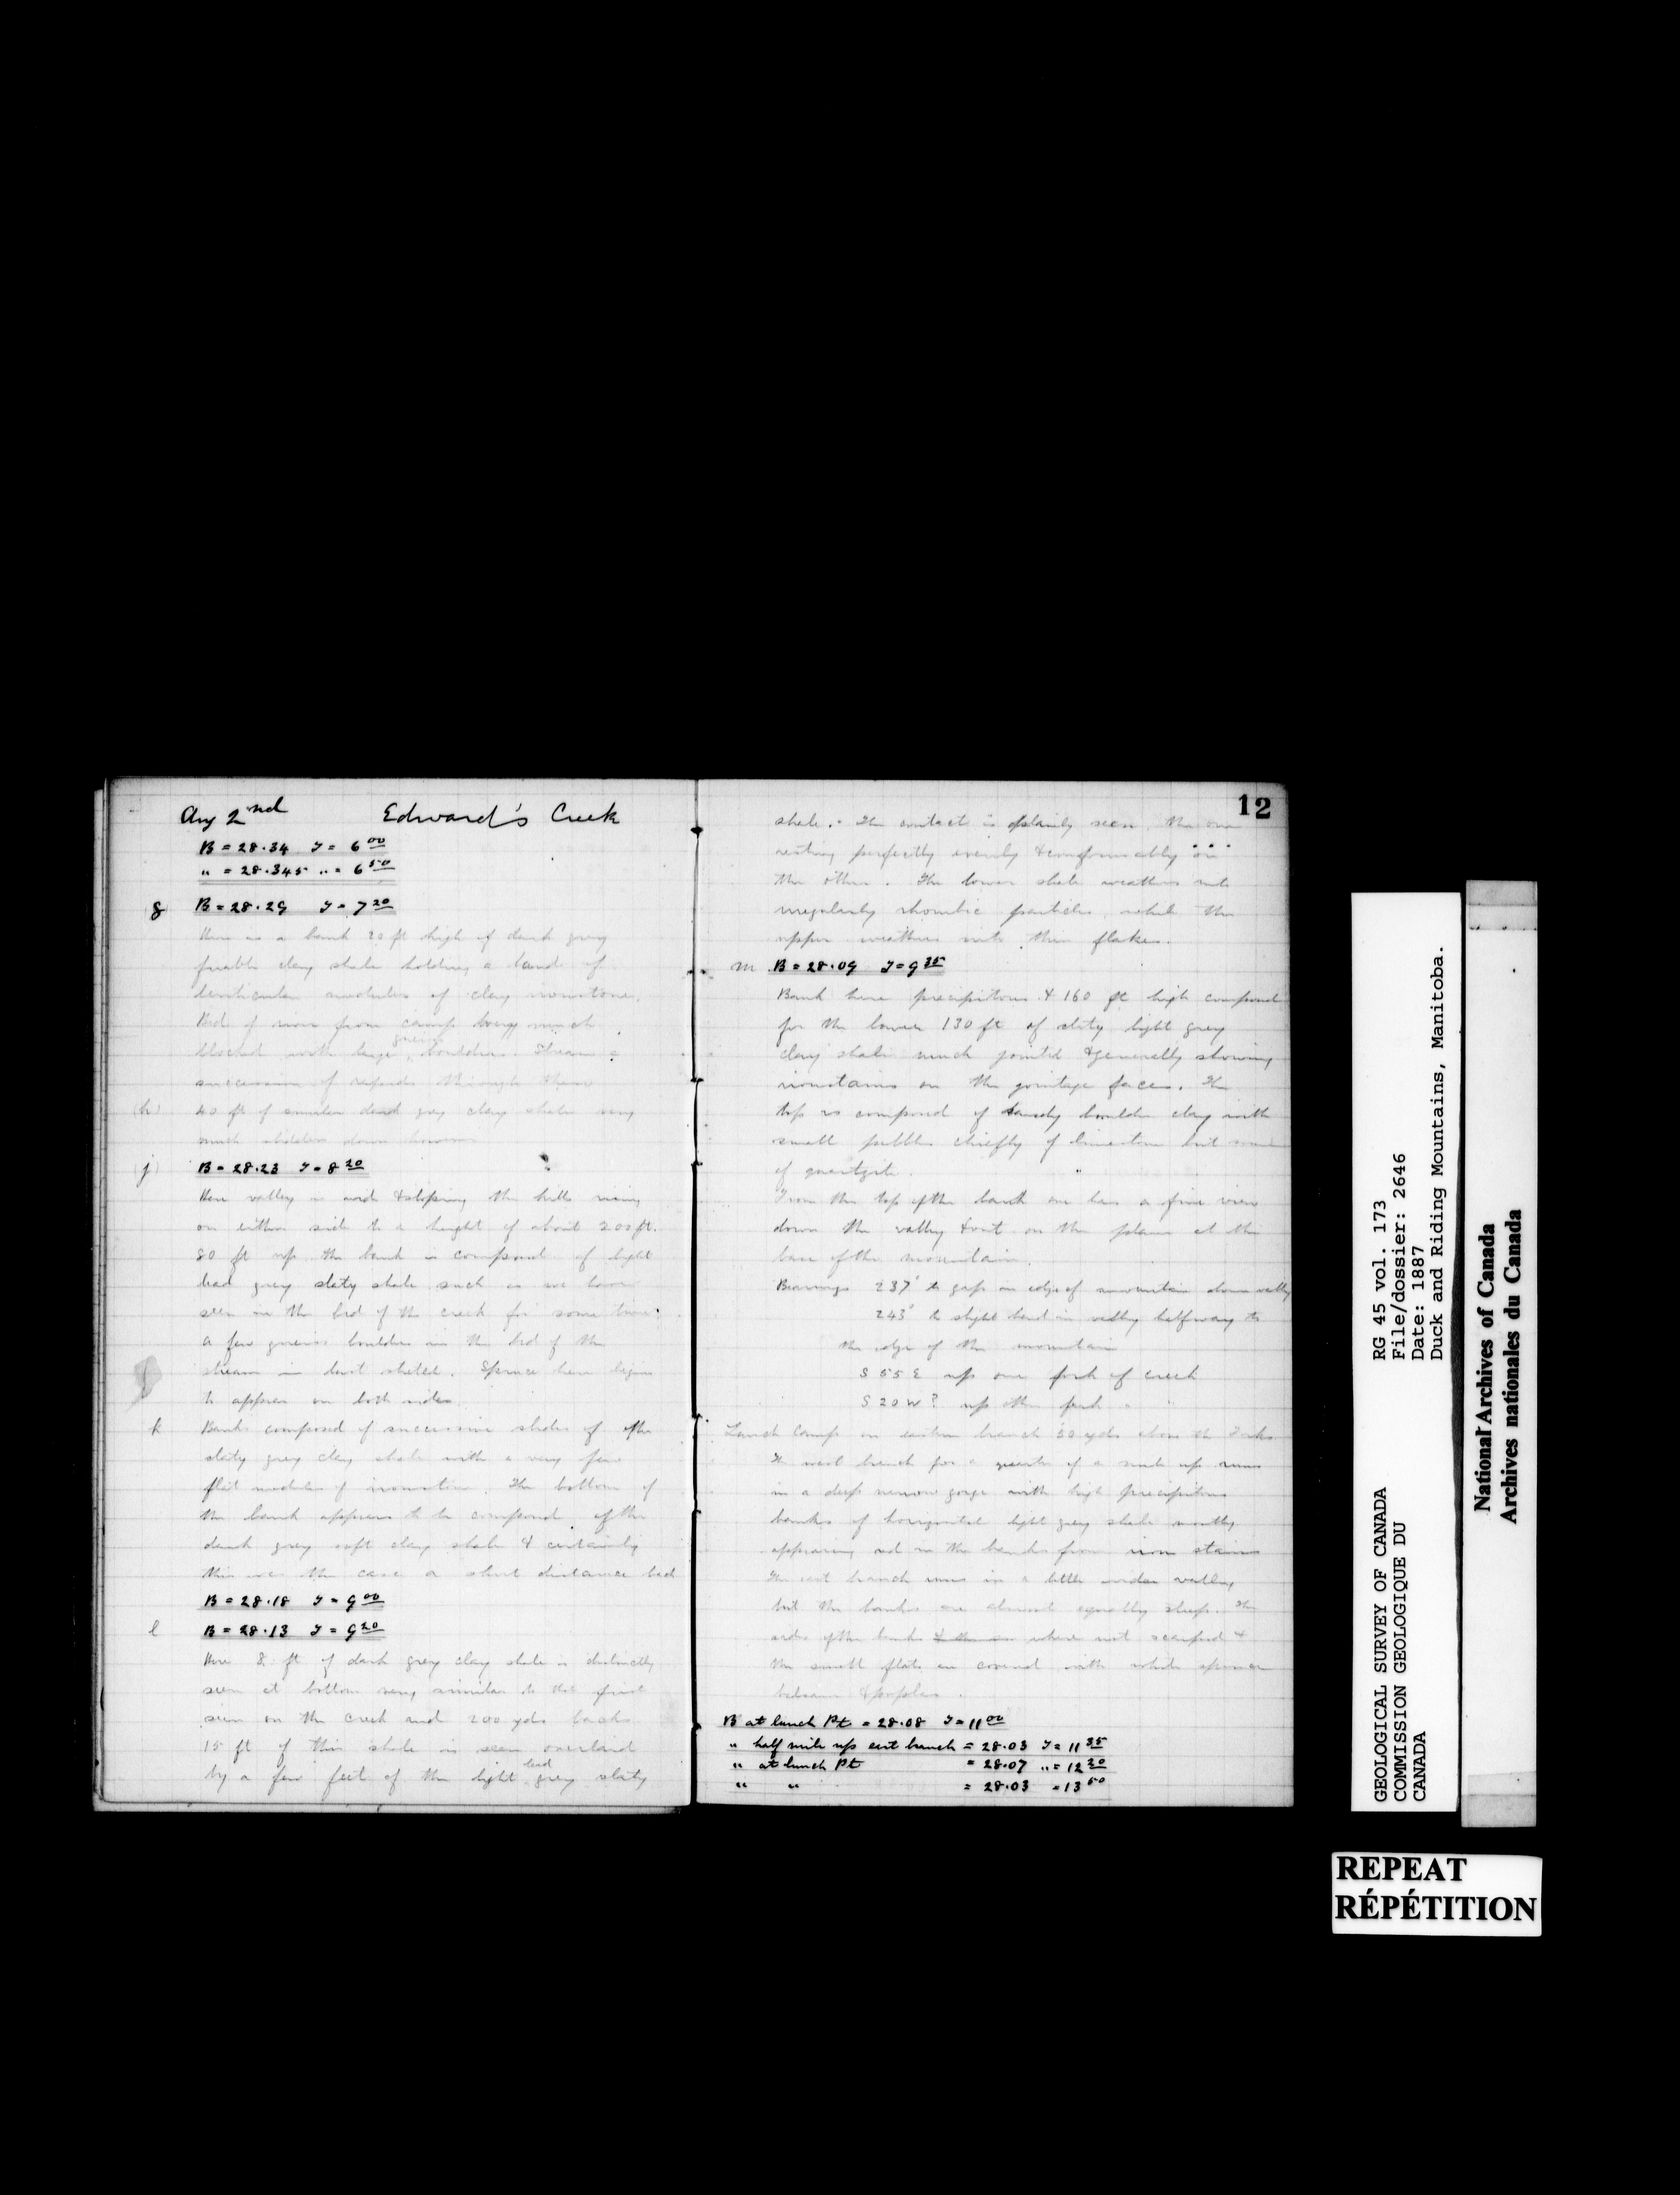 Aug 2nd Edward's Creek
B = 28.34 T = 6 00
" = 28.345 " = 6 50
g B = 28.29 T = 7 20
Here is a bank 20 ft high of dark grey
friable clay shale holding a band of
lenticular nodules of clay ironstone.
Bed of river from camp being much
blocked with large gneiss boulders. Stream a
succession of rapids through them
(h) 40 ft of similar dark grey clay shale very
much slidden down however
(j) B = 28.23 T = 8 20
Here valley is wide & sloping the hills rising
on either side to a height of about 200 ft.
80 ft up the bank is composed of light
lead grey slaty shale such as we have
seen in the bed of the creek for some time.
A few gneiss boulders in the bed of the
stream in last stretch. Spruce here begins
to appear on both sides
k Banks composed of successive slides of the
slaty grey clay shale with a very few
flat nodules of ironstone. The bottom of
the bank appears to be composed of the
dark grey soft clay shale & certainly
this was the case a short distance back
B = 28.18 T = 9 00
l B = 28.13 T = 9 20
Here 8 ft of dark grey clay shale is distinctly
seen at bottom very similar to that first
seen on the creek and 200 yds back
15 ft of this shale is seen overlaid
by a few feet of the light lead grey slaty
12
shale. The contact is plainly seen, the one
resting perfectly evenly & conformably on
the other. The lower shale weathers into
irregularly rhombic particles, while the
upper weathers into thin flakes.
m B = 28.09 T = 9 35
Bank here precipitous & 160 ft high composed
for the lower 130 ft of slaty light grey
clay shale much jointed & generally showing
ironstains on the jointage faces. The
top is composed of sandy boulder clay with
small pebbles chiefly of limestone but some
of quartzite
From the top of the bank one has a fine view
down the valley & out on the plain at the
base of the mountain.
Bearings 237° to gap in edge of mountain down valley
243° to slight bend in valley halfway to
the edge of the mountain
S 55 E up one fork of creek
S 20 W? up other fork " "
Lunch Camp on eastern branch 50 yds above the Forks
The west branch for a quarter of a mile up runs
in a deep narrow gorge with high precipitous
banks of horizontal light grey shale mostly
appearing red in the banks from iron stains
The east branch runs in a little wider valley
but the banks are almost equally steep. The
sides of the banks where not scarped &
the small flats are covered with white spruce
balsam & poplar.
B at lunch Pt = 28.08 T = 11 00
" half mile up east branch = 28.03 T = 11 35
" at lunch Pt = 28.07 " = 12 20
" " = 28.03 = 13 50
GEOLOGICAL SURVEY OF CANADA
COMMISSION GEOLOGIQUE DU
CANADA
RG 45 vol. 173
File/dossier: 2646
Date: 1887
Duck and Riding Mountains, Manitoba.
National Archives of Canada
Archives nationales du Canada
REPEAT
RÉPÉTITION